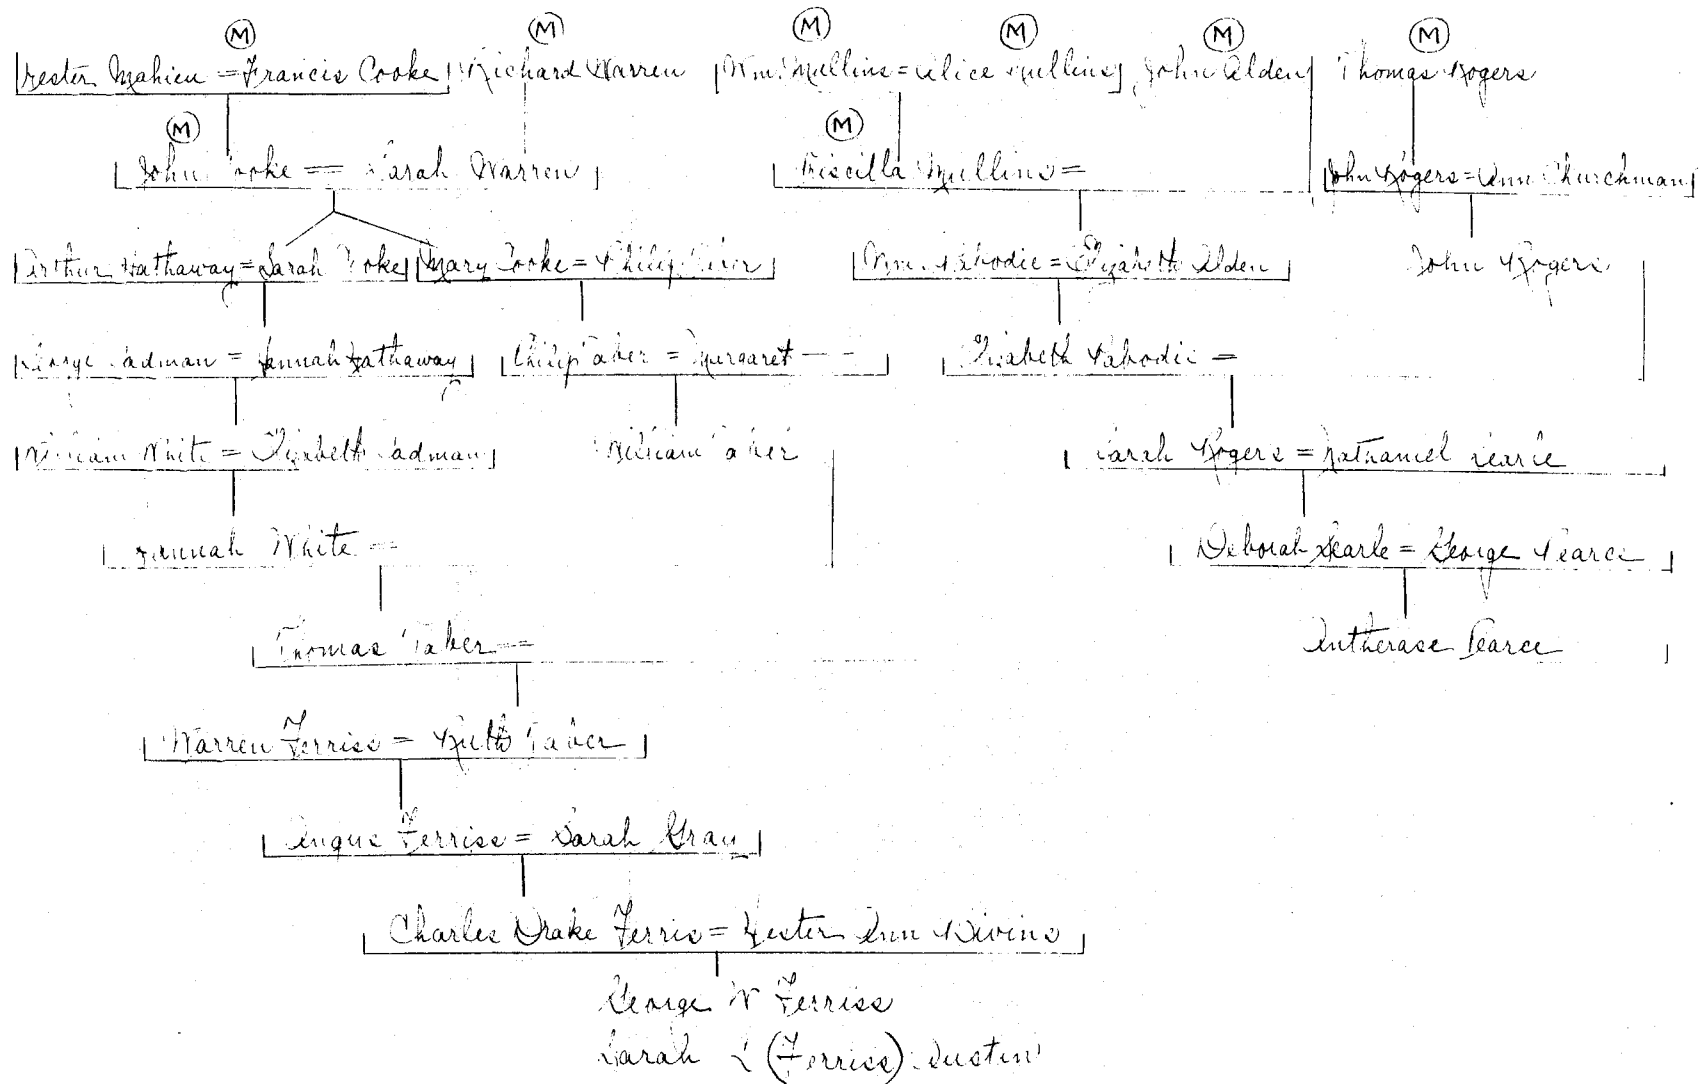 M M M M M M
Hester Mahieu = Francis Cooke Richard Warren Wm. Mullins = Alice Mullins John Alden Thomas Rogers
M M
John Cooke = Sarah Warren Priscilla Mullins = John Rogers = Ann Churchman
Arthur Hathaway = Sarah Cooke Mary Cooke = Philip Taber Wm. Pabodie = Elizabeth Alden John Rogers
George Cadman = Hannah Hathaway Philip Taber = Margaret — — Elizabeth Pabodie =
William White = Elizabeth Cadman William Taber Sarah Rogers = Nathaniel Searle
Hannah White = Deborah Searle = George Pearce
Thomas Taber = Pearce
Warren Ferriss = Ruth Taber
Ferriss = Sarah Gray
Charles Drake Ferris = Hester Ann Bivins
George W Ferriss
Sarah L (Ferriss)